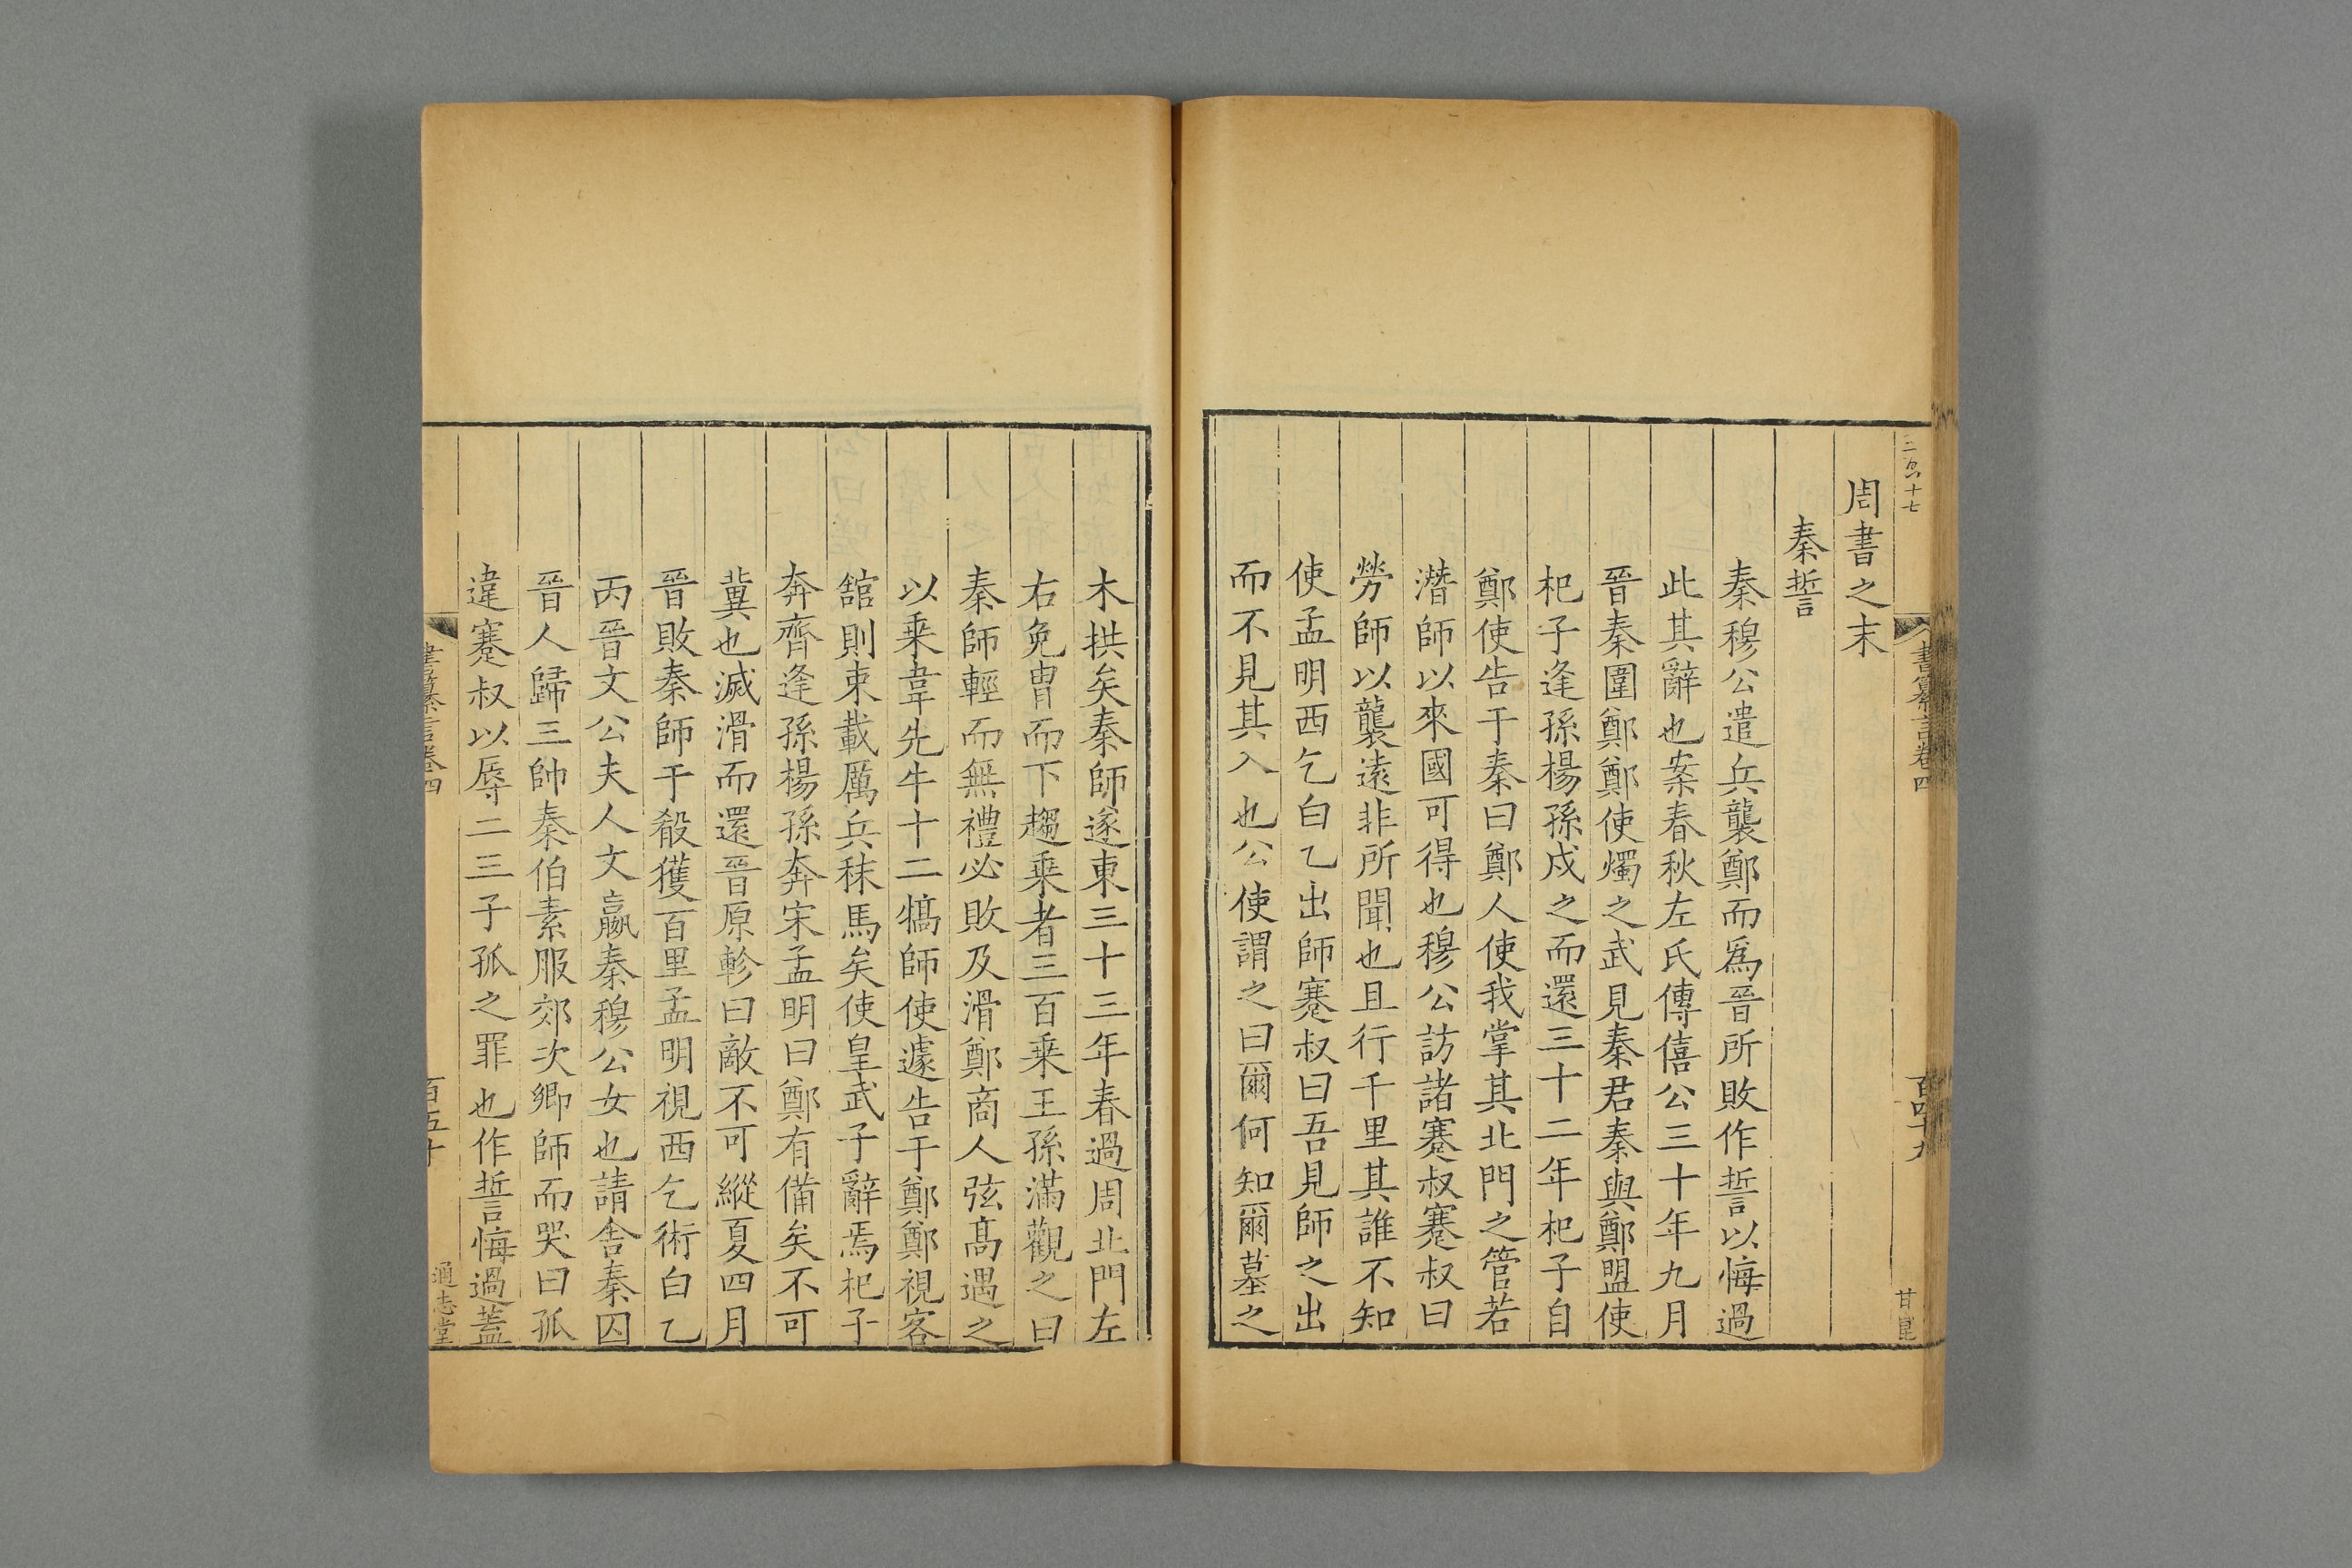 書纂言卷四
百四十九
周書之末
秦誓
秦穆公遣兵襲鄭而爲晉所敗作誓以悔過
此其辭也案春秋左氏傳僖公三十年九月
晉秦圍鄭鄭使燭之武見秦君秦與鄭盟使
杞子逢孫楊孫戍之而還三十二年杞子自
鄭使告于秦曰鄭人使我掌其北門之管若
潛師以來國可得也穆公訪諸蹇叔蹇叔曰
勞師以襲遠非所聞也且行千里其誰不知
使孟明西乞白乙出師蹇叔曰吾見師之出
而不見其入也公使謂之曰爾何知爾墓之
木拱矣秦師遂東三十三年春過周北門左
右免胄而下趨乗者三百乗王孫滿觀之曰
秦師輕而無禮必敗及滑鄭商人弦髙遇之
以乗韋先牛十二犒師使遽告于鄭鄭視客
舘則束載厲兵秣馬矣使皇武子辭焉杞子
奔齊逢孫楊孫奔宋孟明曰鄭有備矣不可
冀也滅滑而還晉原軫曰敵不可縱夏四月
晉敗秦師于殽獲百里孟明視西乞術白乙
丙晉文公夫人文嬴秦穆公女也請舎秦囚
晉人歸三帥秦伯素服郊次郷師而哭曰孤
違蹇叔以辱二三子孤之罪也作誓悔過蓋
書纂言卷四
百五十
通志堂